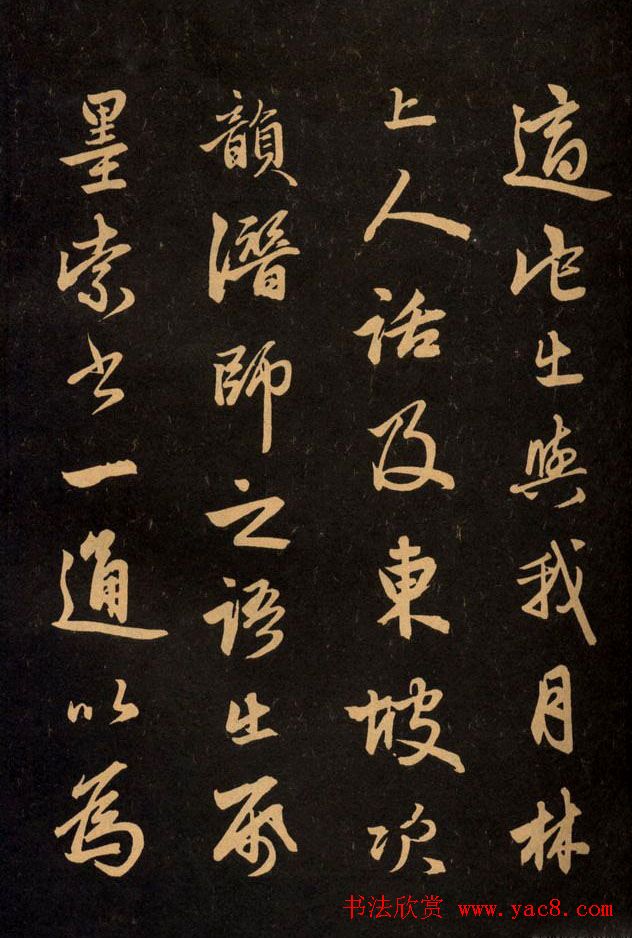 適佗出與我月林
上人話及東坡次
韻潛師之語出帋
墨索書一通以為
书法欣赏 www.yac8.com